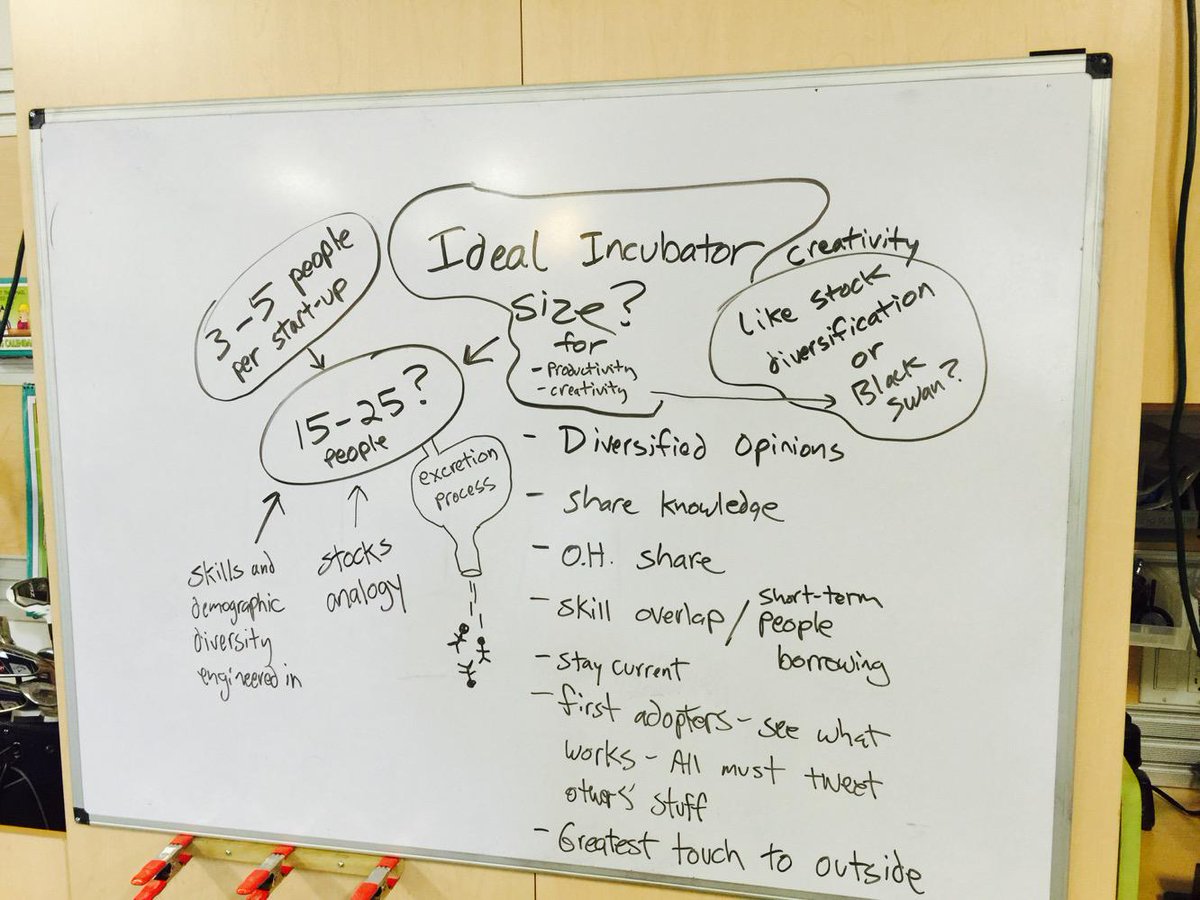 Ideal Incubator
size?
for
- Productivity
- creativity
3-5 people
per start-up
15-25?
people
excretion
process
skills and
demographic
diversity
engineered in
stocks
analogy
creativity
like stock
diversification
or
Black
swan?
- Diversified Opinions
- share knowledge
- O.H. share
- skill overlap / short-term
people
borrowing
- stay current
- first adopters - see what
works - All must tweet
others' stuff
- Greatest touch to outside